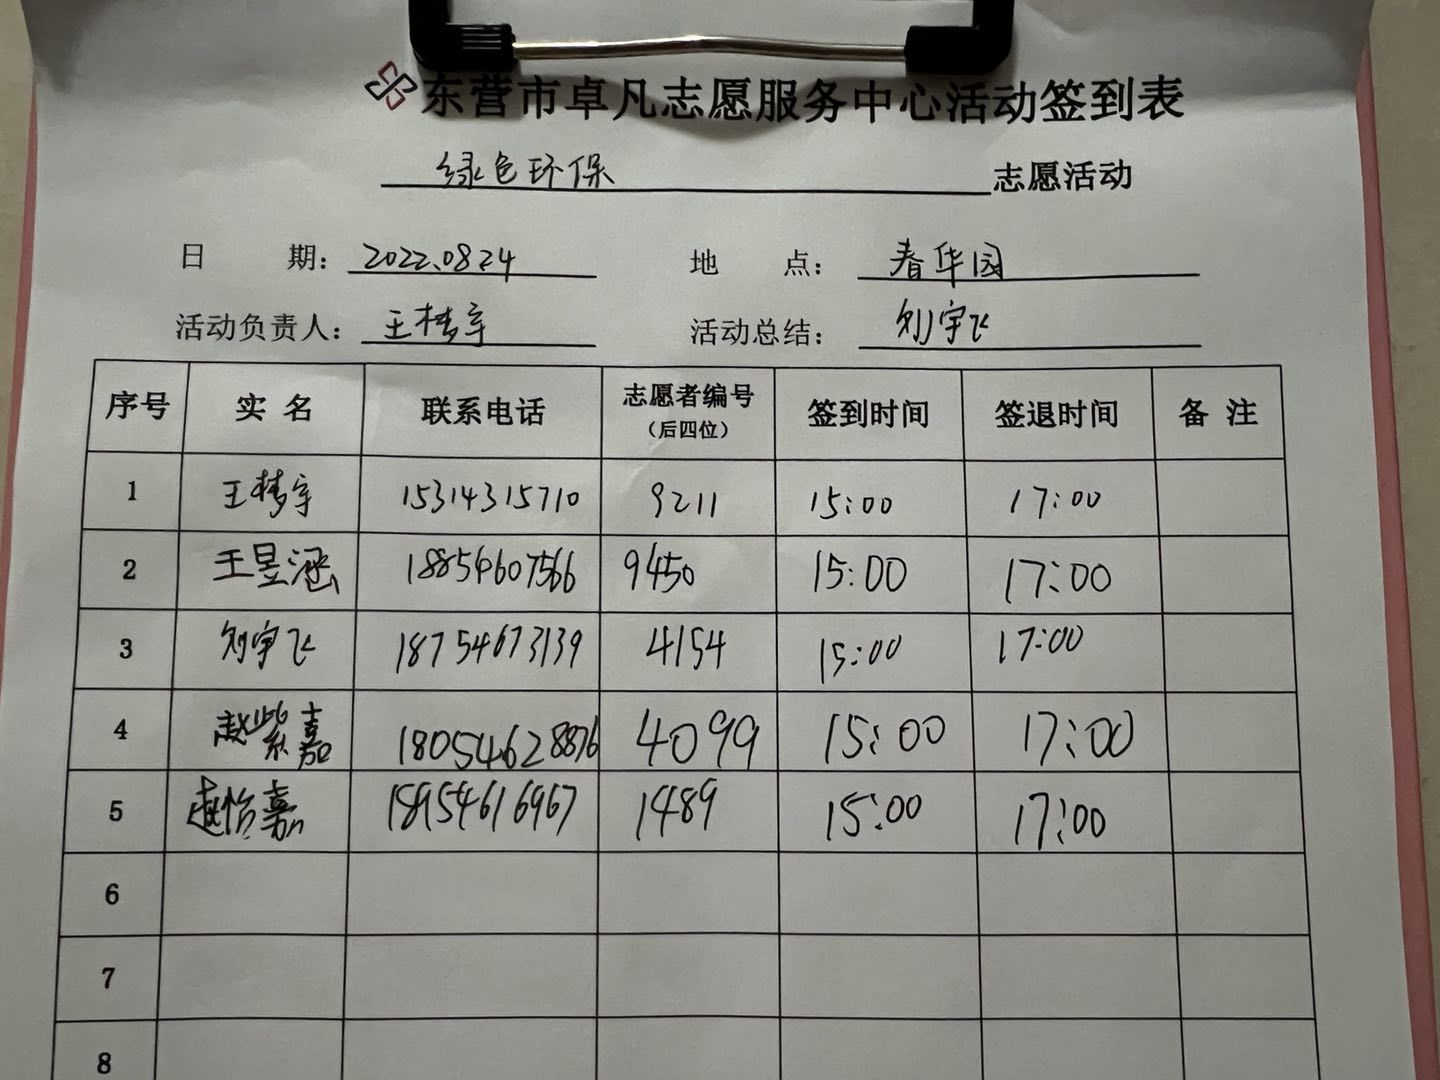 东营市卓凡志愿服务中心活动签到表
绿色环保 志愿活动
日 期： 2022.08.24 地 点： 春华园
活动负责人： 王梦宇 活动总结： 刘宇飞
序号 实 名 联系电话 志愿者编号（后四位） 签到时间 签退时间 备 注
1 王梦宇 15314315710 9211 15:00 17:00
2 王昱涵 18854607566 9450 15:00 17:00
3 刘宇飞 18754673139 4154 15:00 17:00
4 赵紫嘉 18054628876 4099 15:00 17:00
5 赵怡嘉 18954616967 1489 15:00 17:00
6
7
8